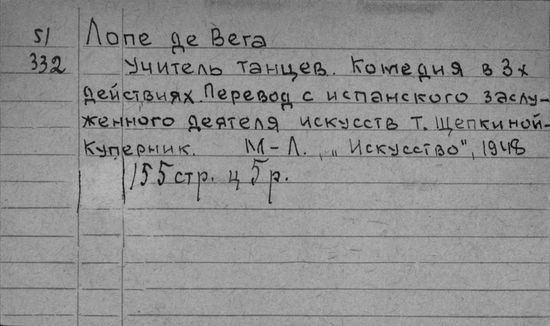 51 Лопе де Вега
332 Учитель танцев. Комедия в 3х
действиях. Перевод с испанского заслу-
женного деятеля искусств Т. Щепкиной-
Куперник. М-Л., „Искусство", 1948
155 стр. ц 5 р.